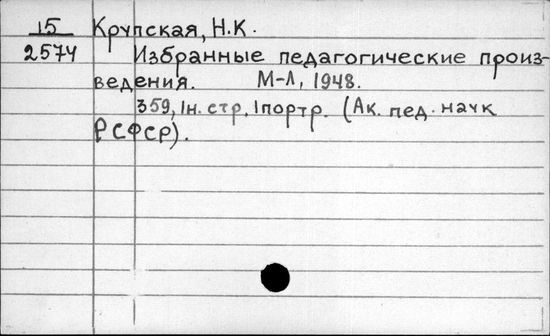 15 Крупская, Н.К.
2574 Избранные педагогические произ-
ведения. М-Л, 1948.
359, 1н. стр. 1портр. (Ак. пед. наук
РСФСР).